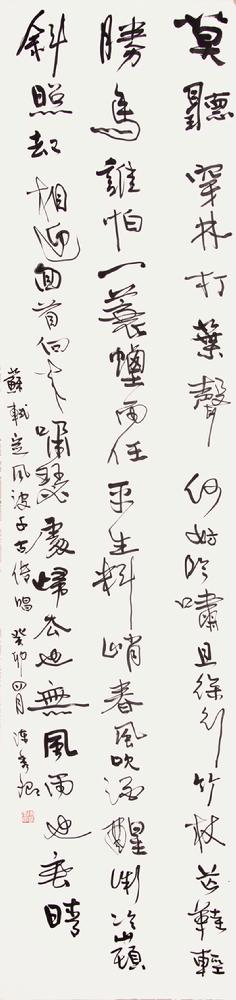 莫聽穿林打葉聲何妨吟嘯且徐行竹杖芒鞋輕
勝馬誰怕一蓑煙雨任平生料峭春風吹酒醒微冷山頭
斜照却相迎回首向來嘯瑟處歸去也無風雨也無晴
蘇軾定風波千古傳唱 癸卯四月 陳秀卿